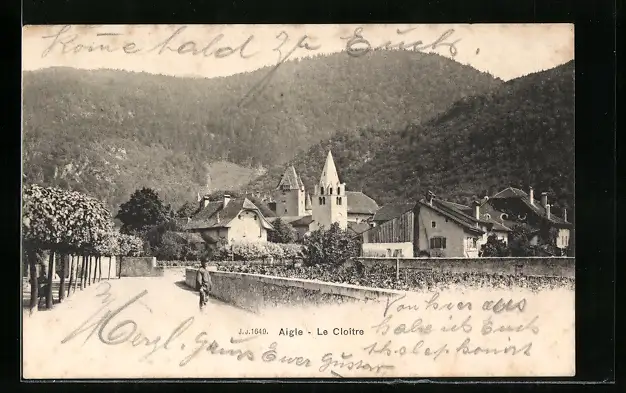 Komme bald zu Euch.
J.J. 1649. Aigle - Le Cloître
Von hier aus
habe ich Euch
Herzl. Grüsse Euer Gustav